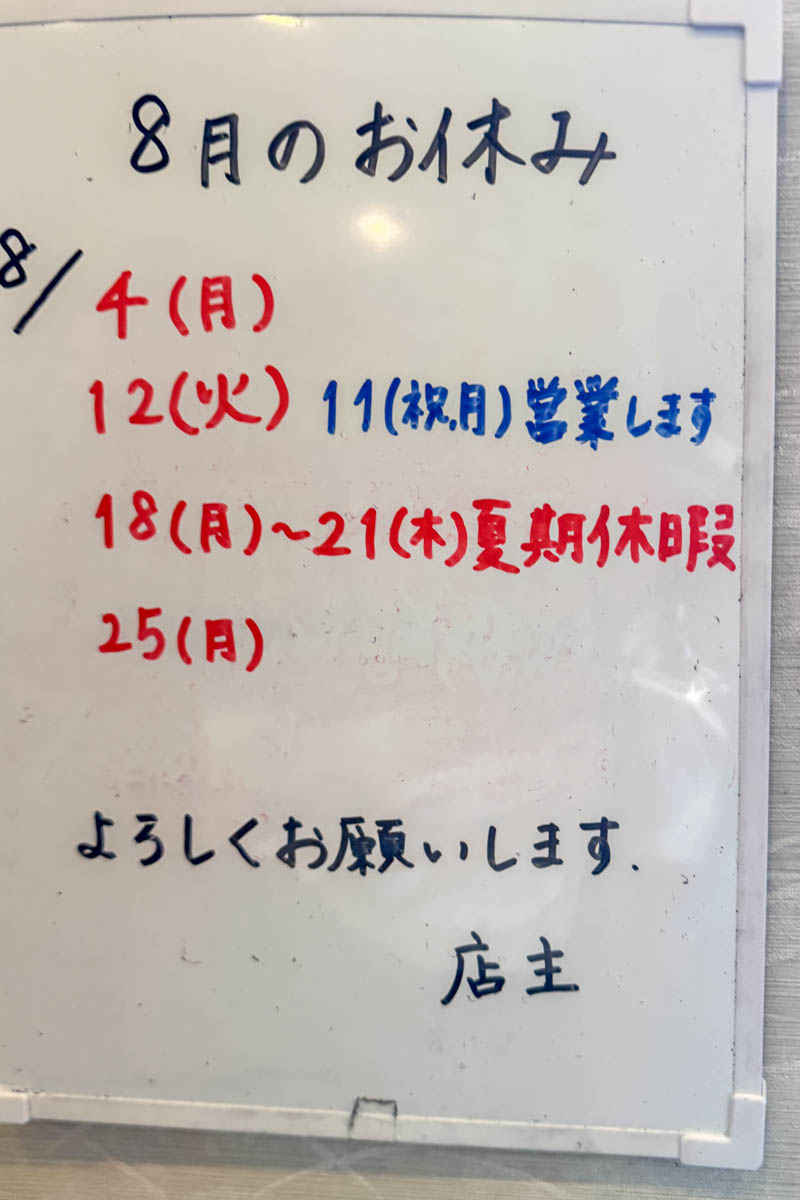 8月のお休み
8/4(月)
12(火) 11(祝月)営業します
18(月)~21(木)夏期休暇
25(月)
よろしくお願いします.
店主